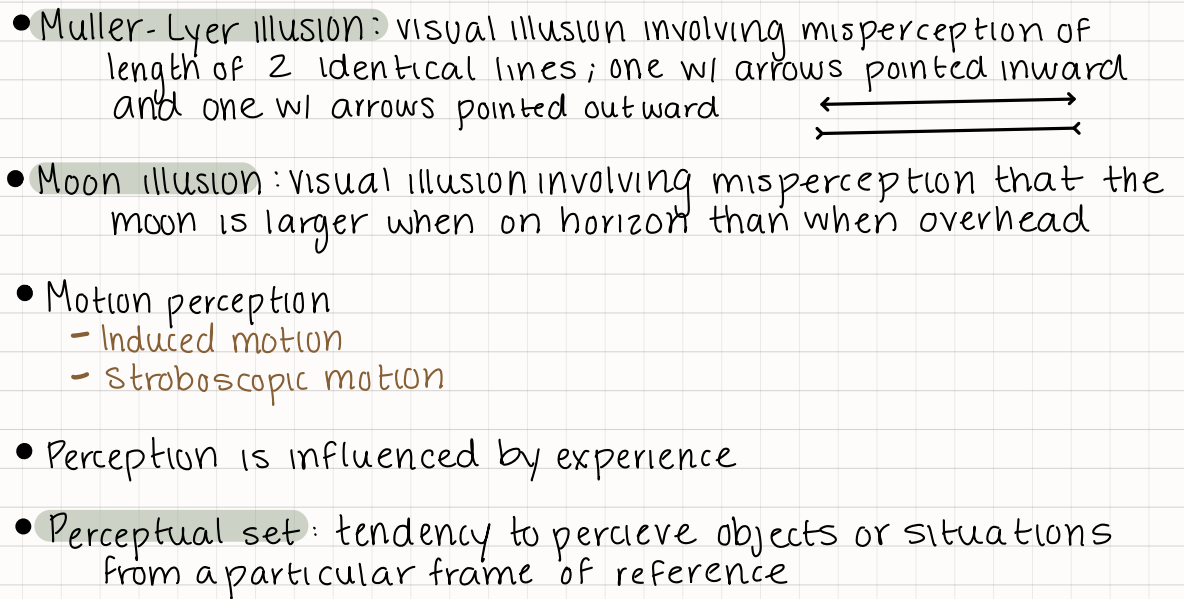 • Muller-Lyer illusion: visual illusion involving misperception of
length of 2 identical lines; one w/ arrows pointed inward
and one w/ arrows pointed outward
• Moon illusion: visual illusion involving misperception that the
moon is larger when on horizon than when overhead
• Motion perception
- Induced motion
- Stroboscopic motion
• Perception is influenced by experience
• Perceptual set: tendency to percieve objects or situations
from a particular frame of reference